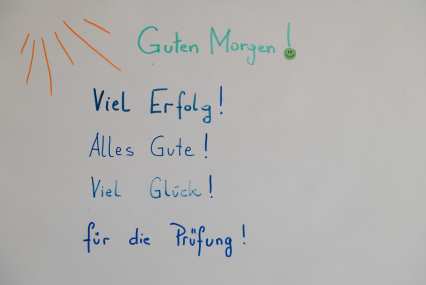 Guten Morgen!
Viel Erfolg!
Alles Gute!
Viel Glück!
für die Prüfung!